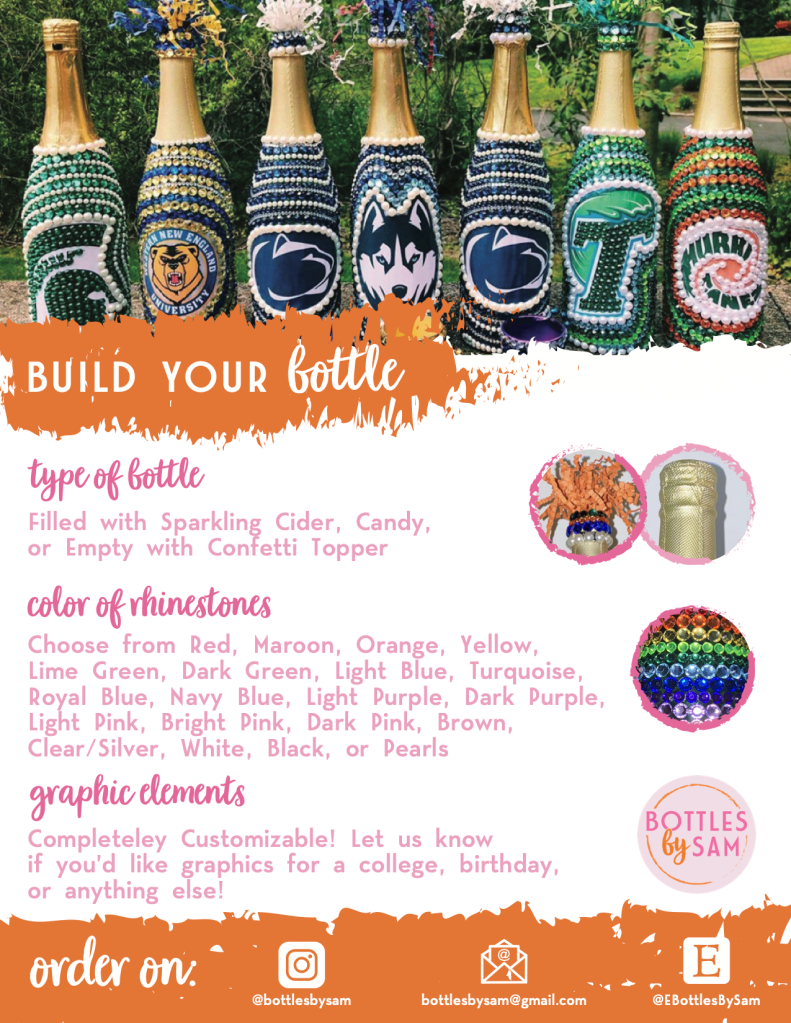 WESTERN NEW ENGLAND
UNIVERSITY
T
HURRICANES
BUILD YOUR bottle
type of bottle
Filled with Sparkling Cider, Candy,
or Empty with Confetti Topper
color of rhinestones
Choose from Red, Maroon, Orange, Yellow,
Lime Green, Dark Green, Light Blue, Turquoise,
Royal Blue, Navy Blue, Light Purple, Dark Purple,
Light Pink, Bright Pink, Dark Pink, Brown,
Clear/Silver, White, Black, or Pearls
graphic elements
Completeley Customizable! Let us know
if you'd like graphics for a college, birthday,
or anything else!
BOTTLES
by SAM
order on:
@
E
@bottlesbysam
bottlesbysam@gmail.com
@EBottlesBySam